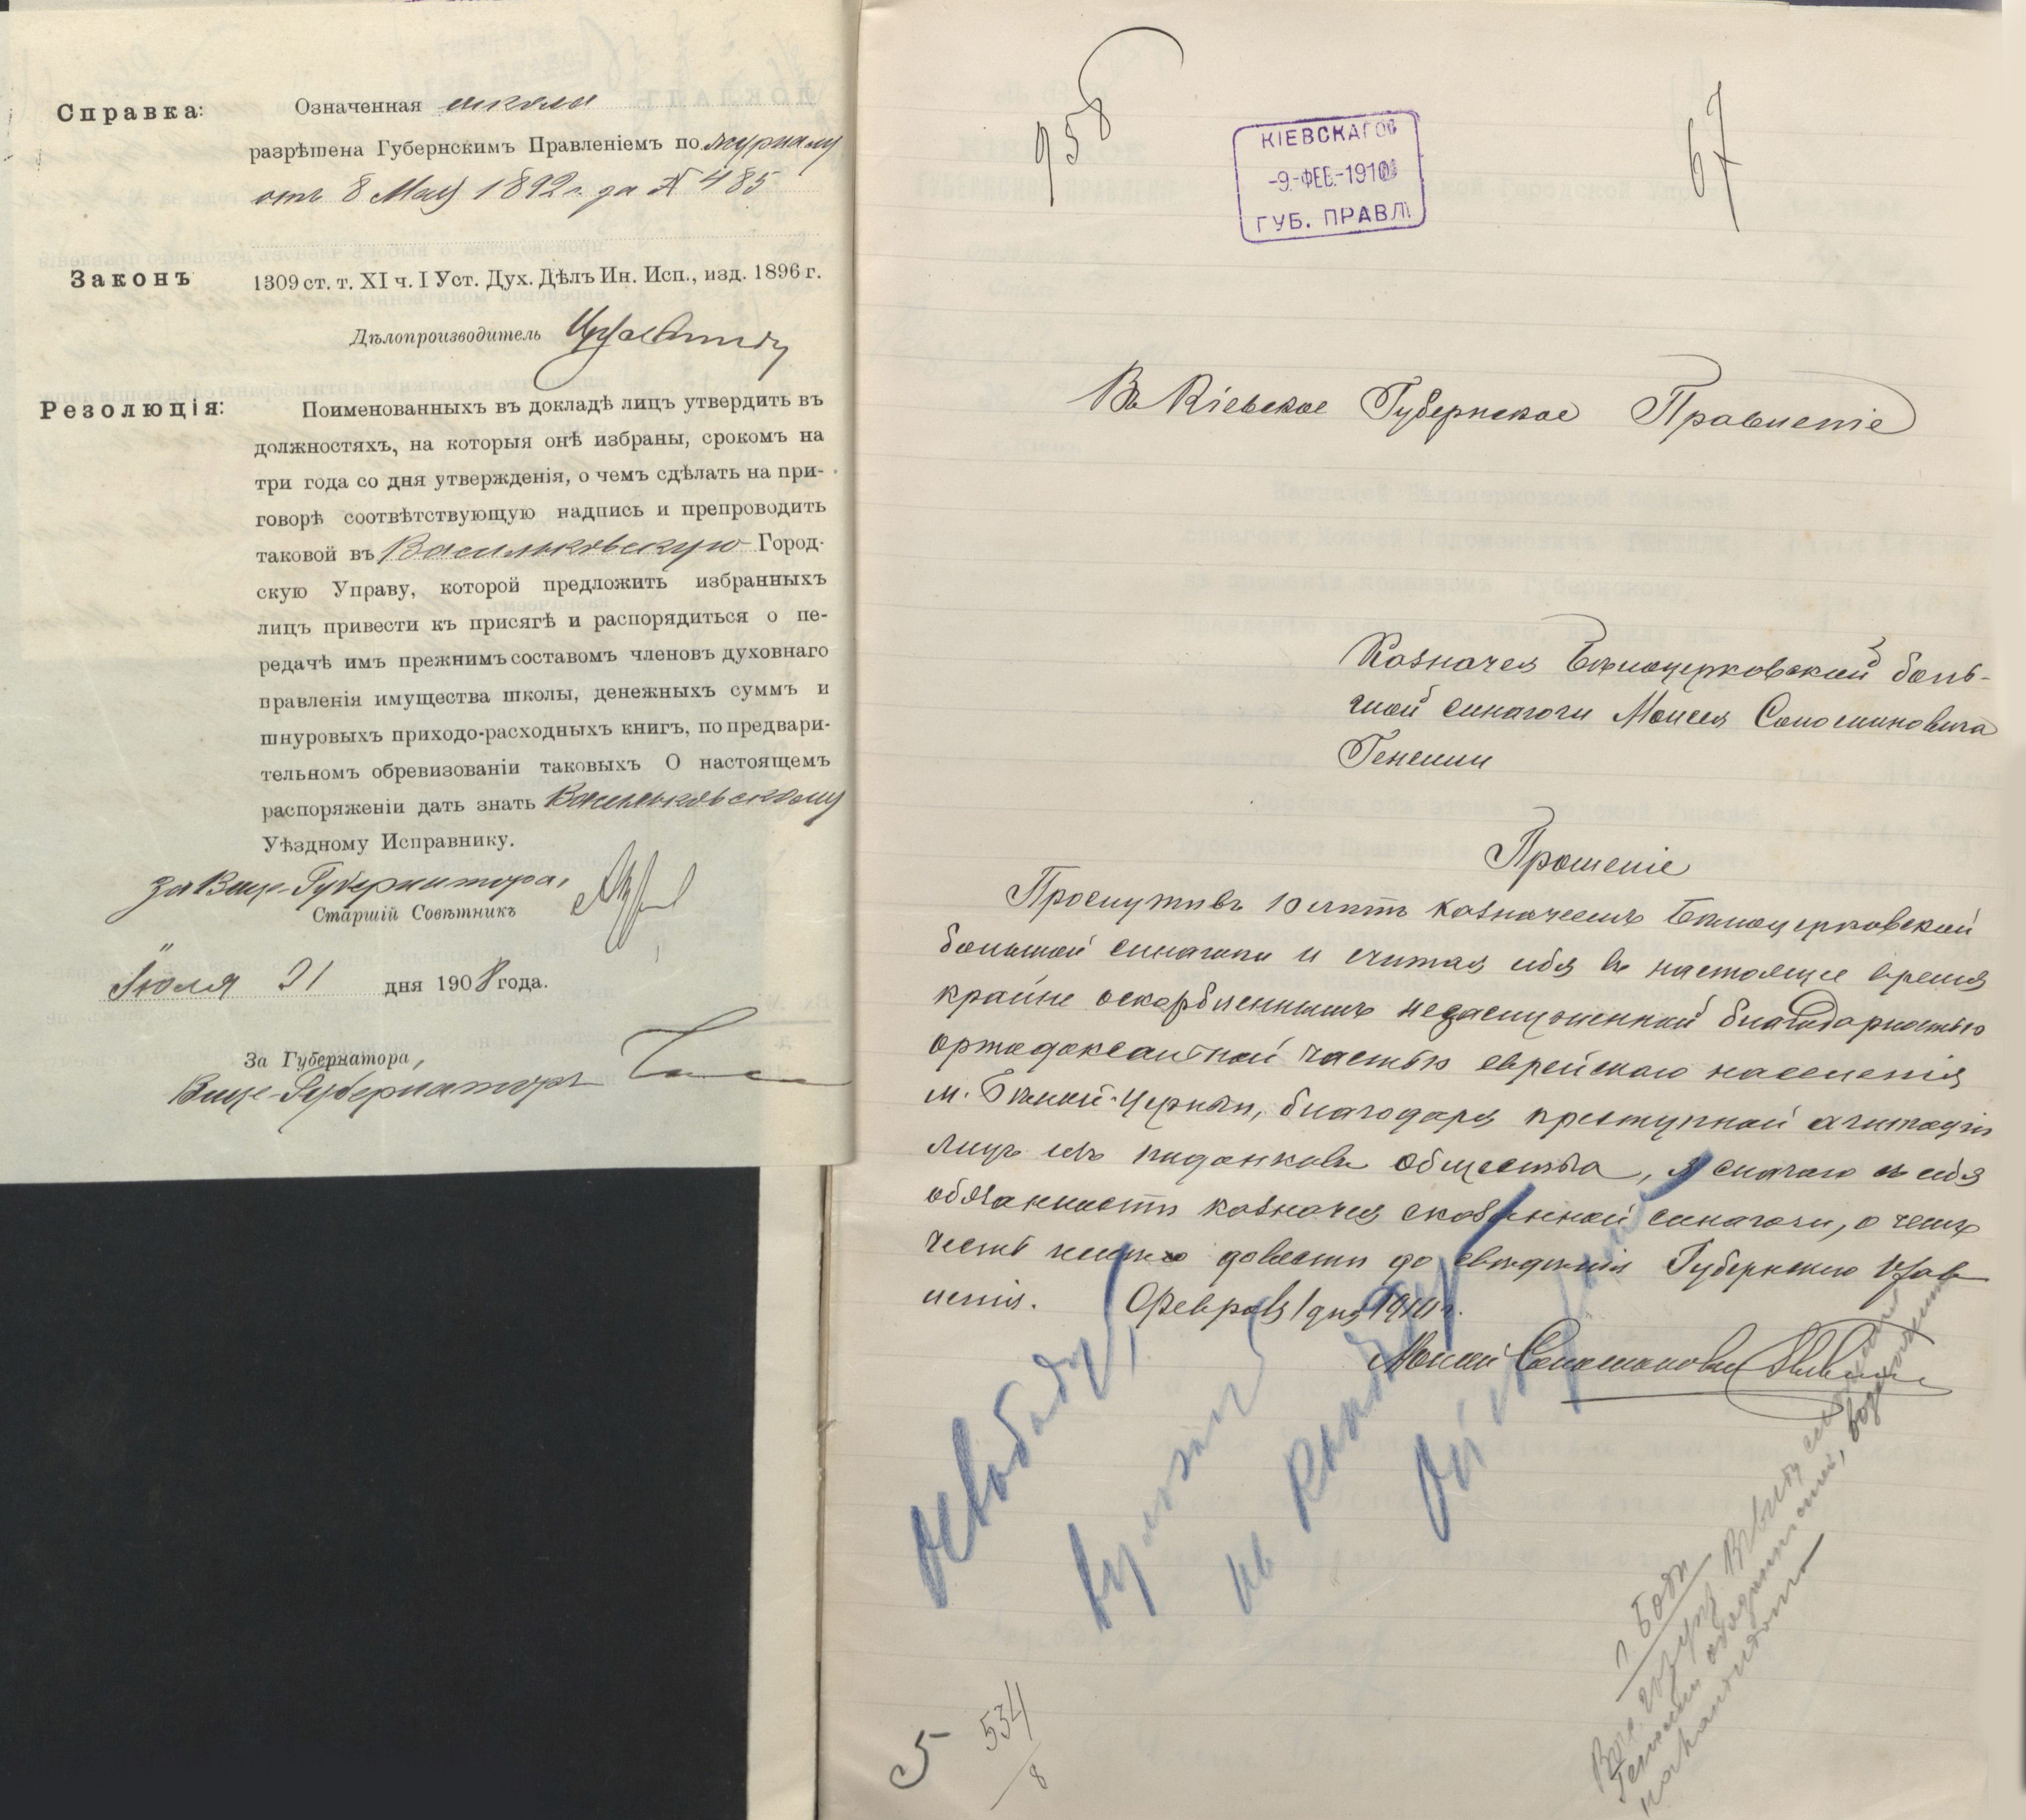 Справка:
Означенная школа
разрѣшена Губернскимъ Правленіемъ по журналу
отъ 8 Мая 1892 г. за № 485
Законъ
1309 ст. т. XI ч. I Уст. Дух. Дѣлъ Ин. Исп., изд. 1896 г.
Дѣлопроизводитель
Резолюція:
Поименованныхъ въ докладѣ лицъ утвердить въ
должностяхъ, на которыя онѣ избраны, срокомъ на
три года со дня утвержденія, о чемъ сдѣлать на при-
говорѣ соотвѣтствующую надпись и препроводить
таковой въ Васильковскую Город-
скую Управу, которой предложить избранныхъ
лицъ привести къ присягѣ и распорядиться о пе-
редачѣ имъ прежнимъ составомъ членовъ духовнаго
правленія имущества школы, денежныхъ суммъ и
шнуровыхъ приходо-расходныхъ книгъ, по предвари-
тельномъ обревизованіи таковыхъ О настоящемъ
распоряженіи дать знать Васильковскому
Уѣздному Исправнику.
За Вице-Губернатора,
Старшій Совѣтникъ
Іюля 31 дня 1908 года.
За Губернатора,
Вице-Губернаторъ
958
КІЕВСКАГО
-9.-ФЕВ.-1910
ГУБ. ПРАВЛ.
67
Въ Кіевское Губернское Правленіе
Казначея Бѣлоцерковской боль-
шой синагоги Моисея Соломоновича
Генсини
Прошеніе
Прослуживъ 10 лѣтъ казначеемъ Бѣлоцерковской
большой синагоги и считая себя въ настоящее время
крайне оскорбленнымъ незаслуженной благодарностью
ортодоксальной частью еврейскаго населенія
м. Бѣлой-Церкви, благодаря преступной агитаціи
лицъ изъ подонковъ общества, я слагаю съ себя
обязанность казначея сказанной синагоги, о чемъ
честь имѣю довести до свѣдѣнія Губернскаго Прав
ленія. Февраля 1 дня 1910 г.
Моисей Соломоновичъ
освободить
къ
5
534
8